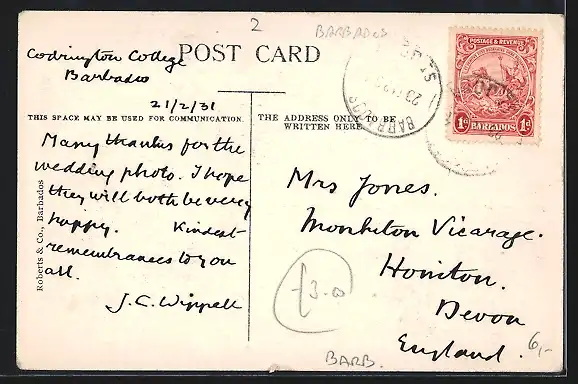 2
BARBADOS
Codrington College
Barbados
POST CARD
21/2/31
THIS SPACE MAY BE USED FOR COMMUNICATION.
THE ADDRESS ONLY TO BE
WRITTEN HERE
Many thanks for the
wedding photo. I hope
they will both be very
happy. Kindest
remembrances to you
all.
J.C. Wippell
Roberts & Co., Barbados
POSTAGE & REVENUE
1d BARBADOS 1d
BARBADOS
Mrs Jones.
Monkton Vicarage.
Honiton.
Devon
England.
£3.00
BARB.
6,-